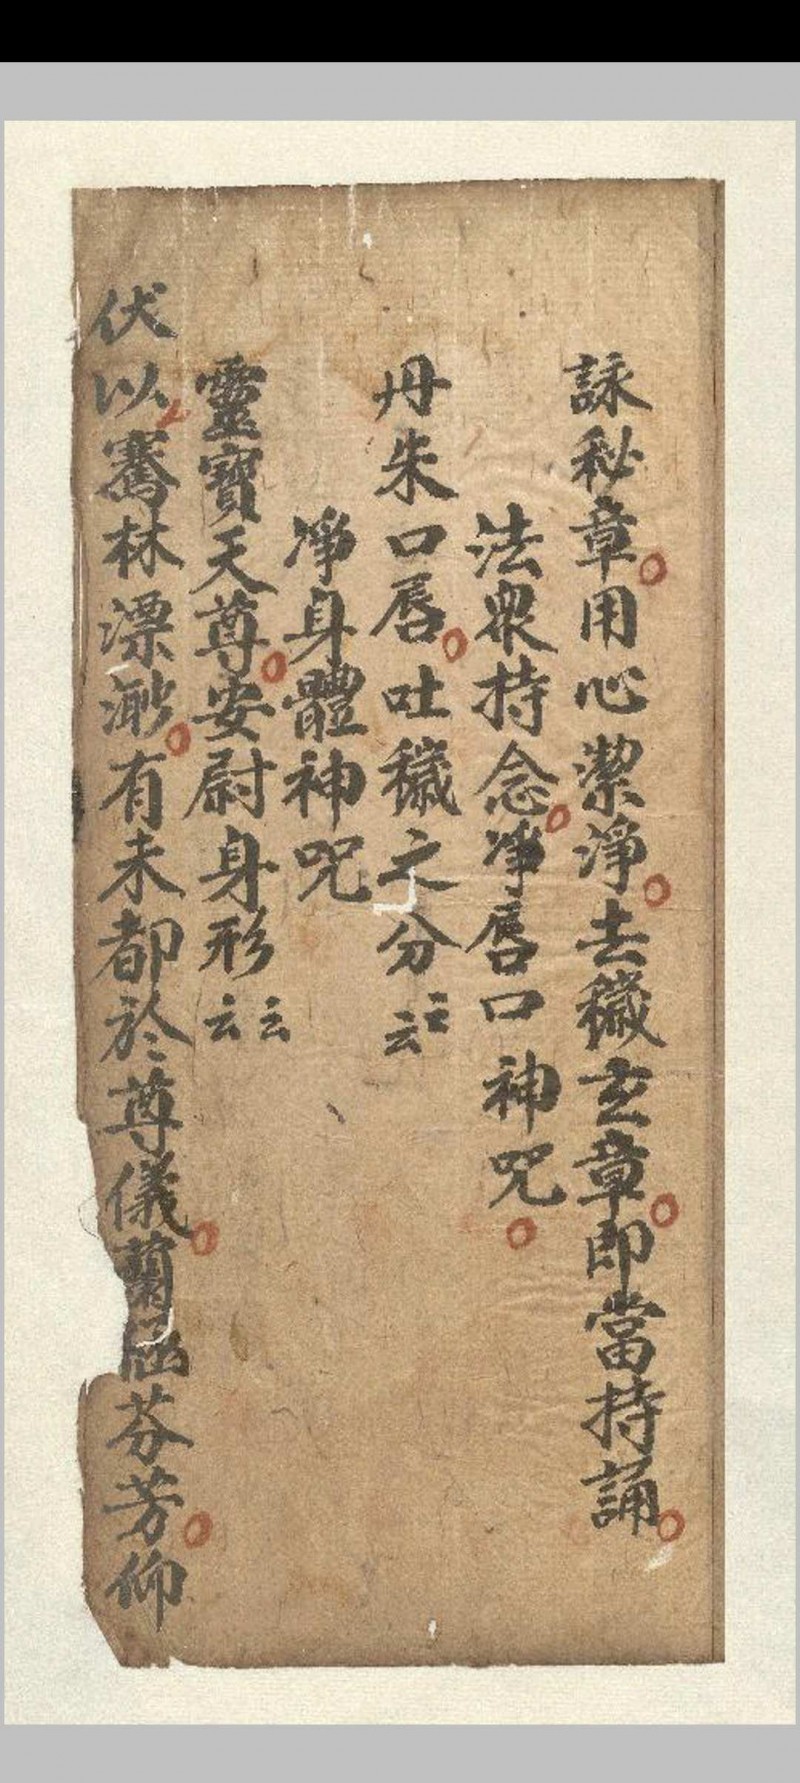 詠秘章用心潔淨去穢玄章即當持誦
法衆持念淨唇口神咒
丹朱口唇吐穢之分云云
淨身體神咒
靈寶天尊安尉身形云云
伏以騫林漂渺有未都於尊儀蘭函芬芳仰